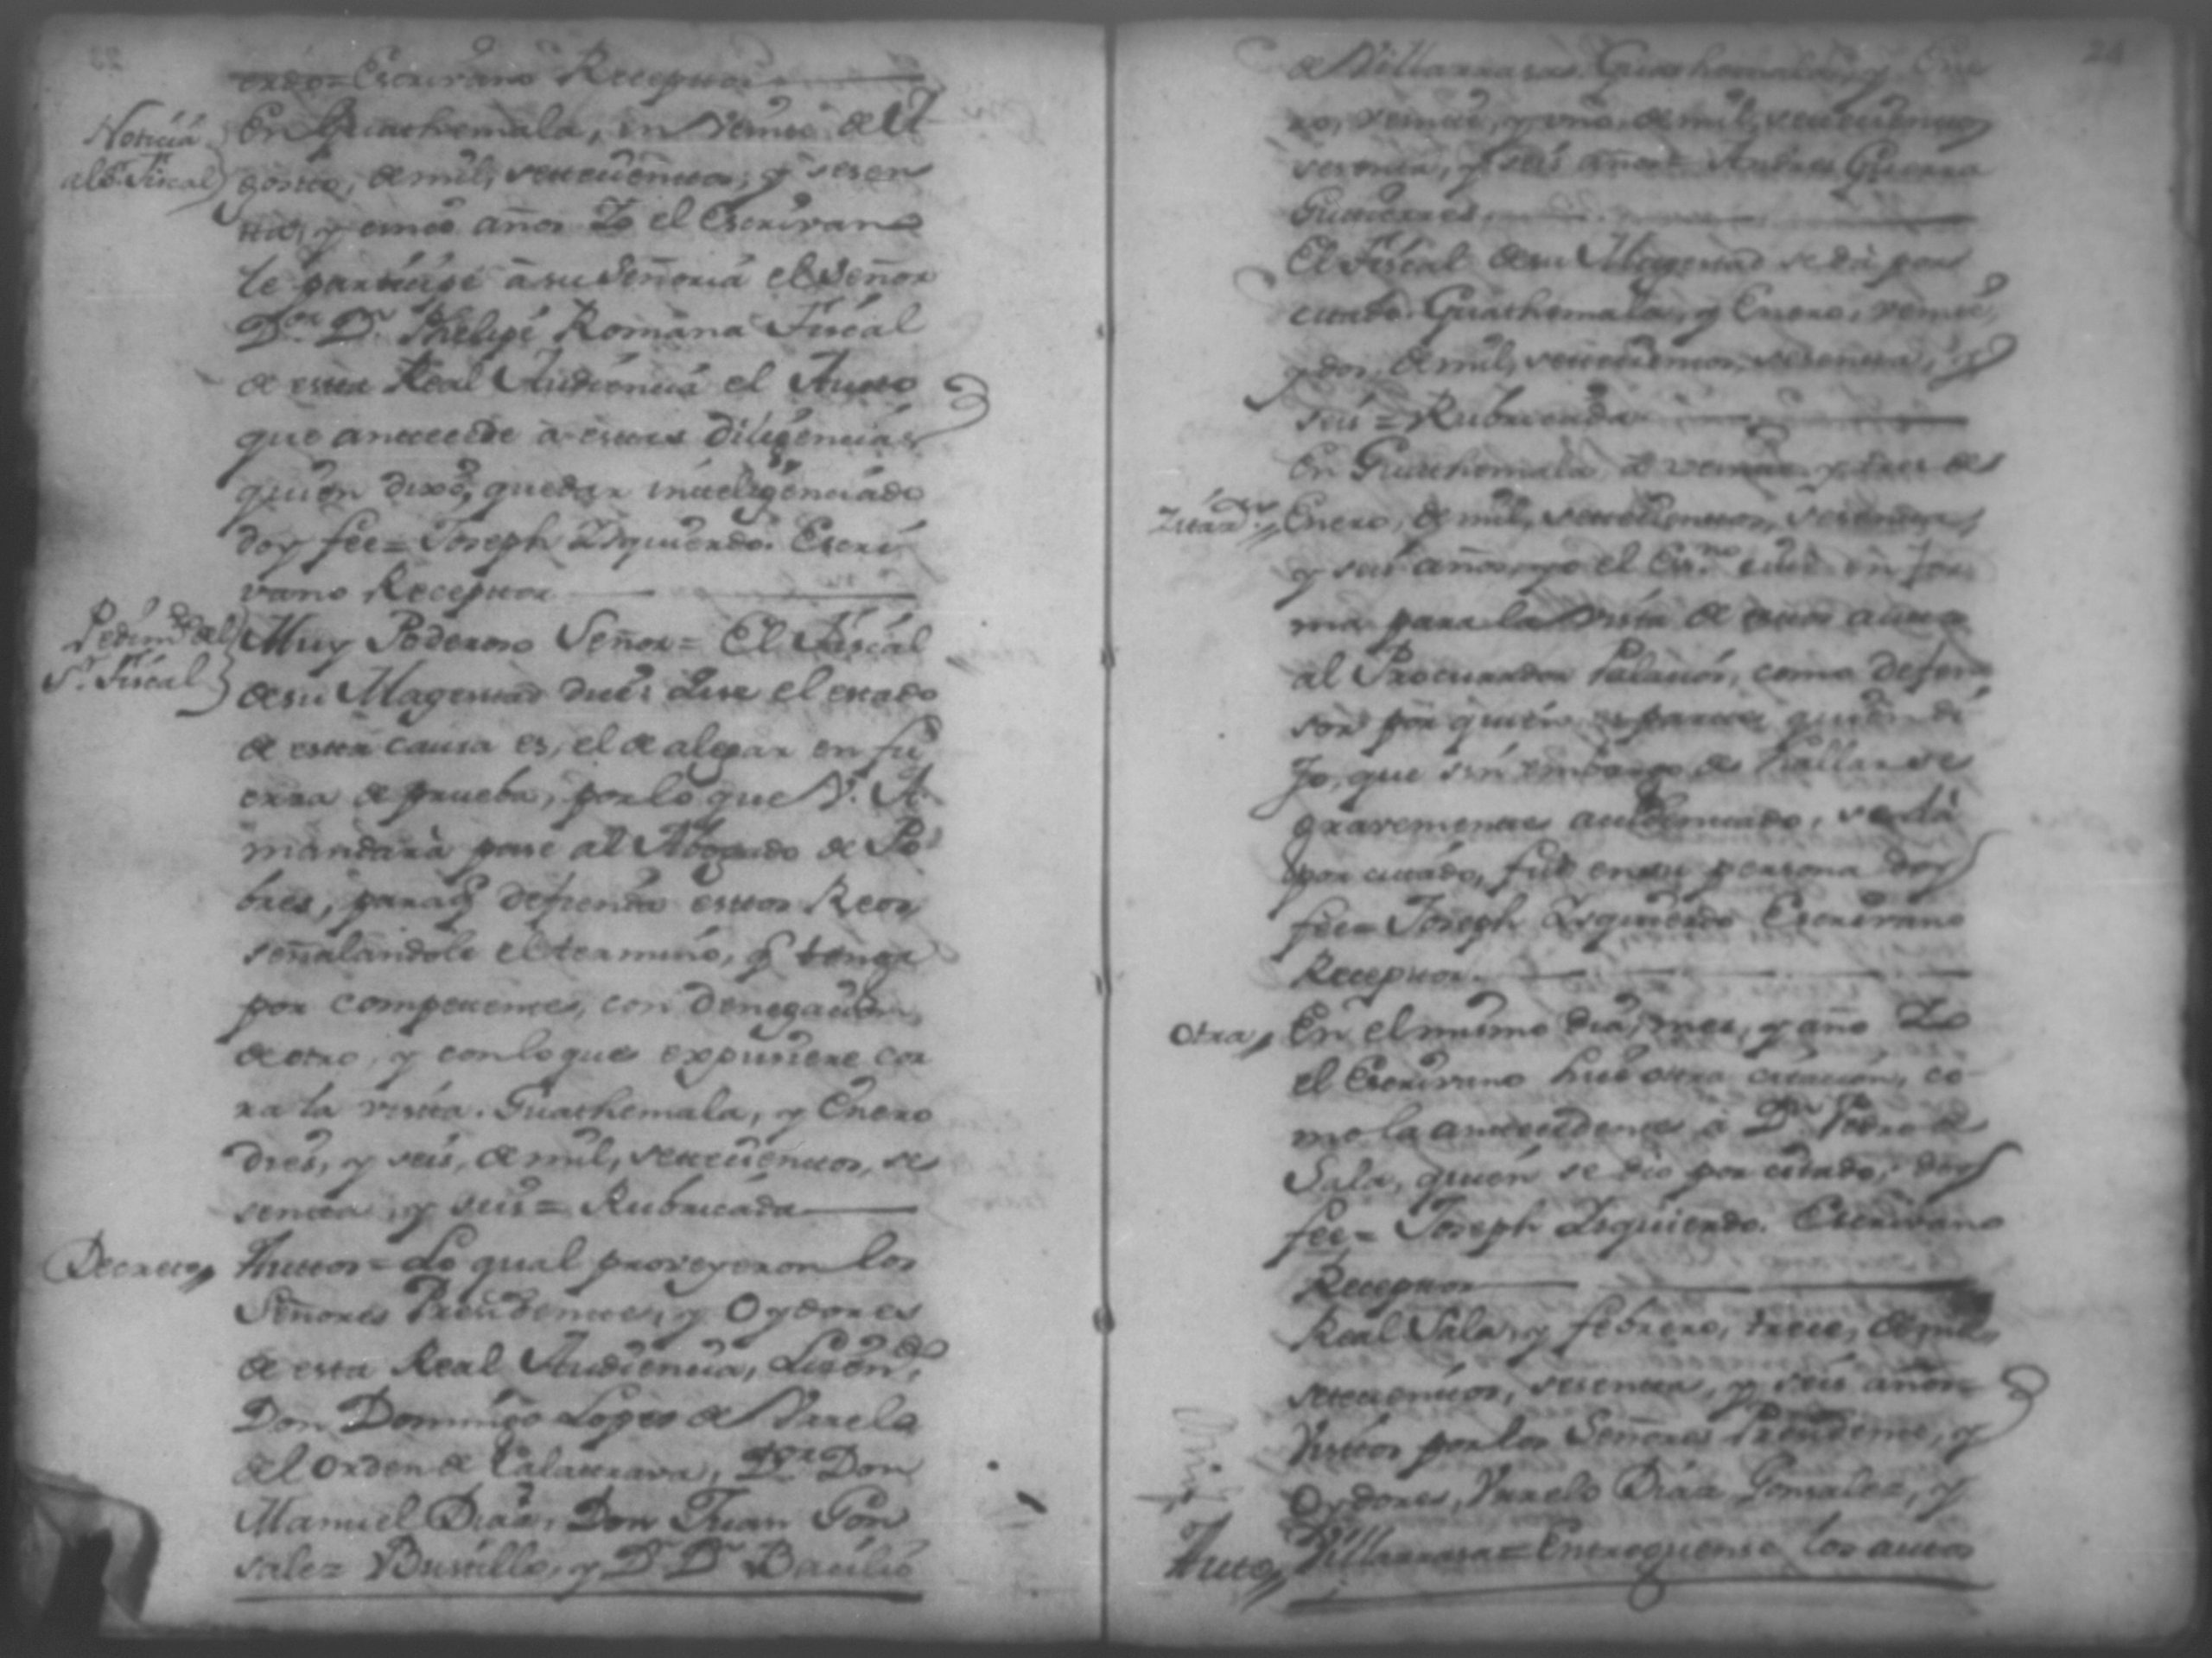 erdo= Escrivano Receptor
Noticia
al S.r Fiscal
En Guathemala, en veinte de A
gosto, de mil, setecientos, y sesen
ta, y cinco años Yo el Escrivano
le participé à su Señoria el Señor
D.or D.n Phelipe Romana Fiscal
de esta Real Audiencia el Auto
que antecede à estas diligencias
quien dixo, quedar inteligenciado
doy fee= Joseph Izquierdo. Escri
vano Receptor
Pedim.to del
S.r Fiscal
Muy Poderoso Señor= El Fiscal
de su Magestad dice: Que el estado
de esta causa es, el de alegar en fu
erza de prueba, por lo que V. A.
mandarà pase al Abogado de Po
bres, para q defienda estos Reos
señalandole el termino, q tenga
por competente, con denegacion,
de otro, y con lo que expusiere cor
ra la vista. Guathemala, y Enero
dies, y seis, de mil, setecientos, se
senta, y seis= Rubricada
Decreto
Autos= Lo qual proveyeron los
Señores Presidente, y Oydores
de esta Real Audiencia, Lizen.do
Don Domingo Lopes de Urrelo
del Orden de Calatrava, D.or Don
Manuel Dias, Don Juan Gon
salez Bustillo, y D.r D.n Basilio
24
de Villarrasa. Guathemala, y Ene
ro, veinte, y uno, de mil, setecientos
sesenta, y seis años= Andres Guerra
Gutierres.
El Fiscal de su Magestad se dà por
citado. Guathemala, y Enero, veinte,
y dos, de mil, setecientos, sesenta, y
seis= Rubricada
Zitaz.on
En Guathemala à veinte y tres de
Enero, de mil, setecientos, sesenta,
y seis años, yo el Es.no cité en for
ma para la vista de estos autos
al Procurador Palacios, como defen
sor por quien es parte, quien di
jo, que sin embargo de hallarse
gravemente accidentado, se dà
por citado, fue en su persona doy
fee= Joseph Izquierdo Escrivano
Receptor.
Otra
En el mismo dia, mes, y año Yo
el Escrivano hise otra citacion, co
mo la antecedente à D.n Pedro de
Sala, quien se dio por citado, doy
fee= Joseph Izquierdo. Escrivano
Receptor
Real Sala, y febrero, trece, de mil
setecientos, sesenta, y seis años
Vistos por los Señores Presidente, y
Oydores, Urrelo Diaz Gonsalez, y
Auto
Villarrasa= Entreguense los autos